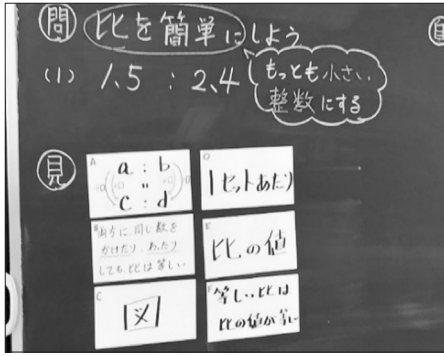 問 比を簡単にしよう
(1) 1.5 : 2.4
もっとも小さい
整数にする
見
A
a : b
"
c : d
B
両方に、同じ数を
かけたり、わったり
しても比は等しい
C
図
D
1セットあたり
E
比の値
F
等しい比は
比の値が等しい